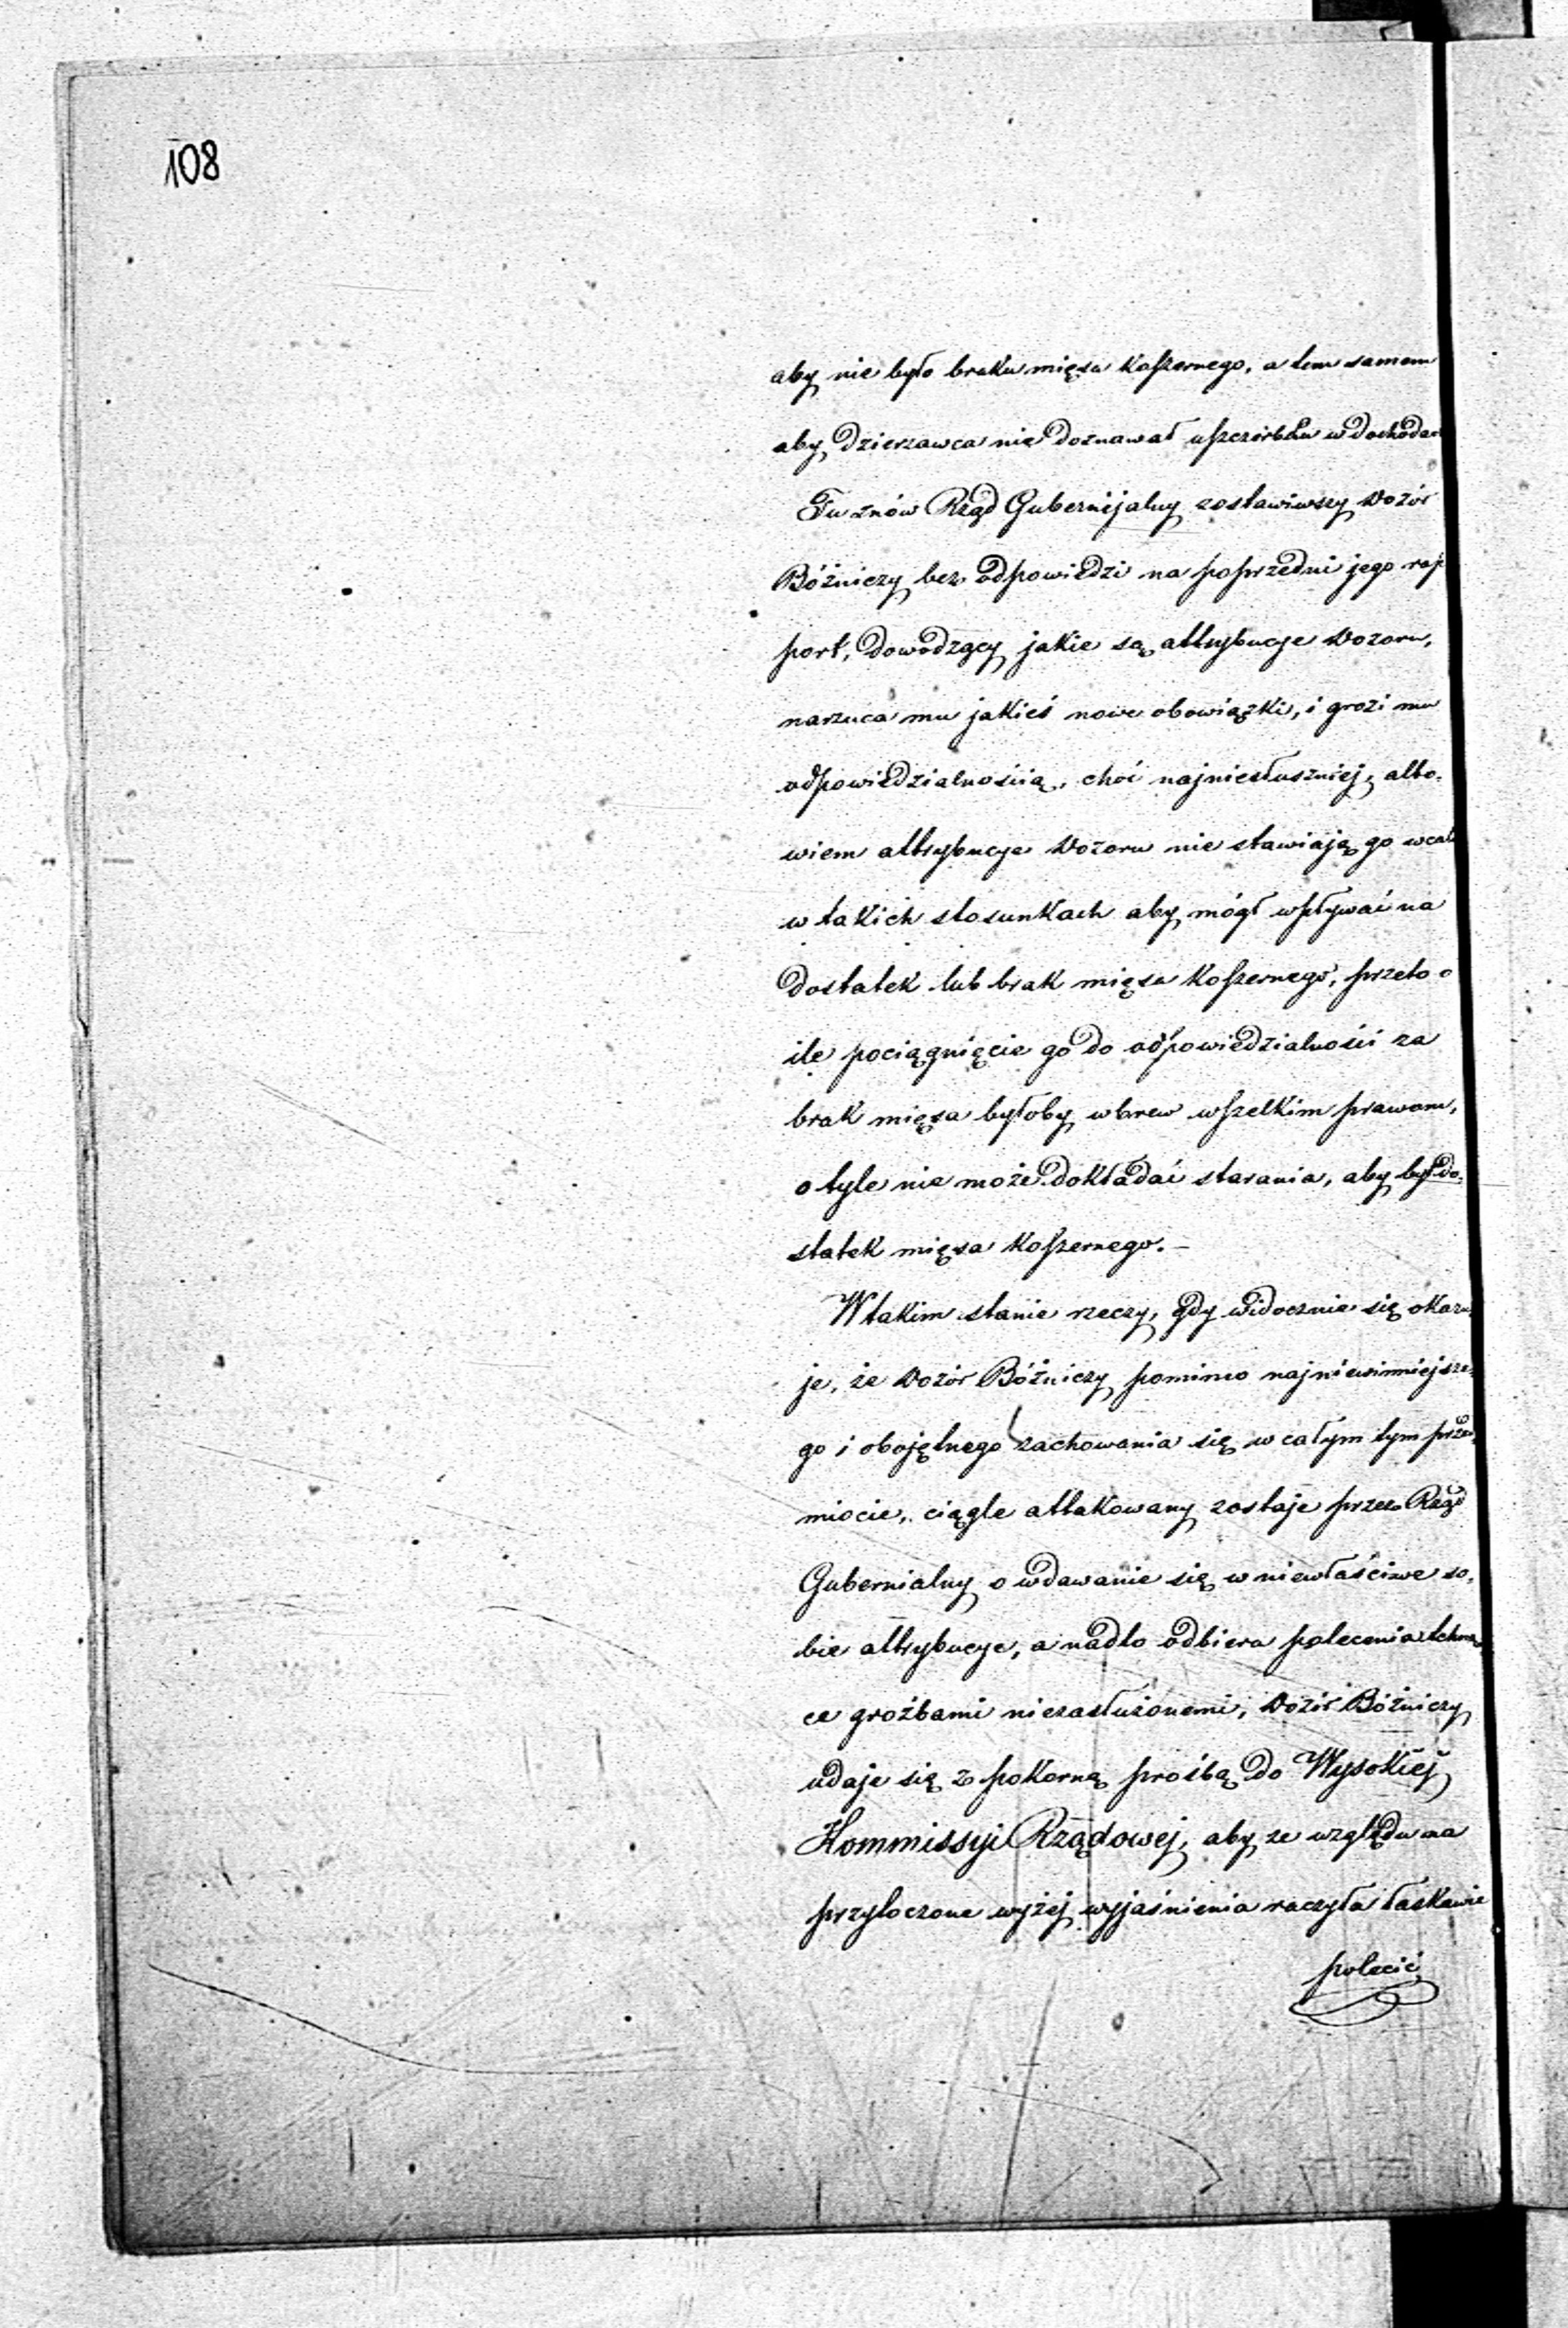 108
aby nie było braku mięsa koszernego, a tem samem
aby dzierzawca nie doznawał uszczerbku w dochodach
Tu znów Rząd Gubernijalny zostawiwszy Dozór
Bóżniczy bez odpowiedzi na poprzedni jego rap
port, dowodzący jakie są attrybucye Dozoru,
narzuca mu jakieś nowe obowiązki, i grozi mu
odpowiedzialnością, choć najniesłuszniej, albo-
wiem attrybucye Dozoru nie stawiają go wcale
w takich stosunkach aby mógł wpływać na
dostatek lub brak mięsa koszernego, przeto o
ile pociągnięcie go do odpowiedzialności za
brak mięsa byłoby wbrew wszelkim prawom,
o tyle nie może dokładać starania, aby był do-
statek mięsa koszernego.–
W takim stanie rzeczy, gdy widocznie się okazu-
je, że Dozór Bóżniczy pomimo najniewinniejsze-
go i obojętnego zachowania się w całym tym przed-
miocie, ciągle attakowany zostaje przez Rząd
Gubernialny o wdawanie się w niewłaściwe so-
bie attrybucye, a nadto odbiera polecenia tchną-
ce groźbami niezasłużonemi, Dozór Bóżniczy
udaje się z pokorną prośbą do Wysokiéj
Kommissyi Rządowej, aby ze względu na
przytoczone wyżej wyjaśnienia raczyła łaskawie
polecić